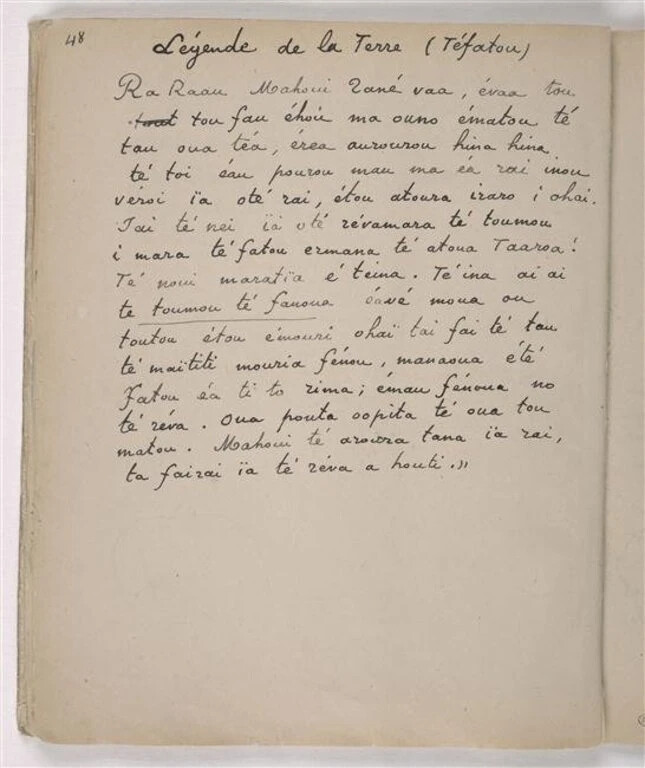 48
Légende de la Terre (Téfatou)
Ra Raau Mahoui Tané vaa, évaa tou
tou fau éhoïi ma ouno ématou té
tau oua téa, érea aurourou hina hina
té toi éau pourou mau ma éa rai inou
véroi ïa oté rai, étou atoura iraro i ohai.
Tai té nei ïa oté révamara té toumou
i mara té fatou ermana té atoua Taaroa!
Té noui maratïa é teina. Té ina ai ai
te toumou té fanoua éavé moua ou
toutou étou émouri ohaï tai fai té tau
té maïtiti mouria fénou, manaoua été
Fatou éa ti to rima; émau fénoua no
té réva. Oua pouta oopita té oua tou
matou. Mahoui té arourra tana ïa rai,
ta fairai ïa té réva a houti.»